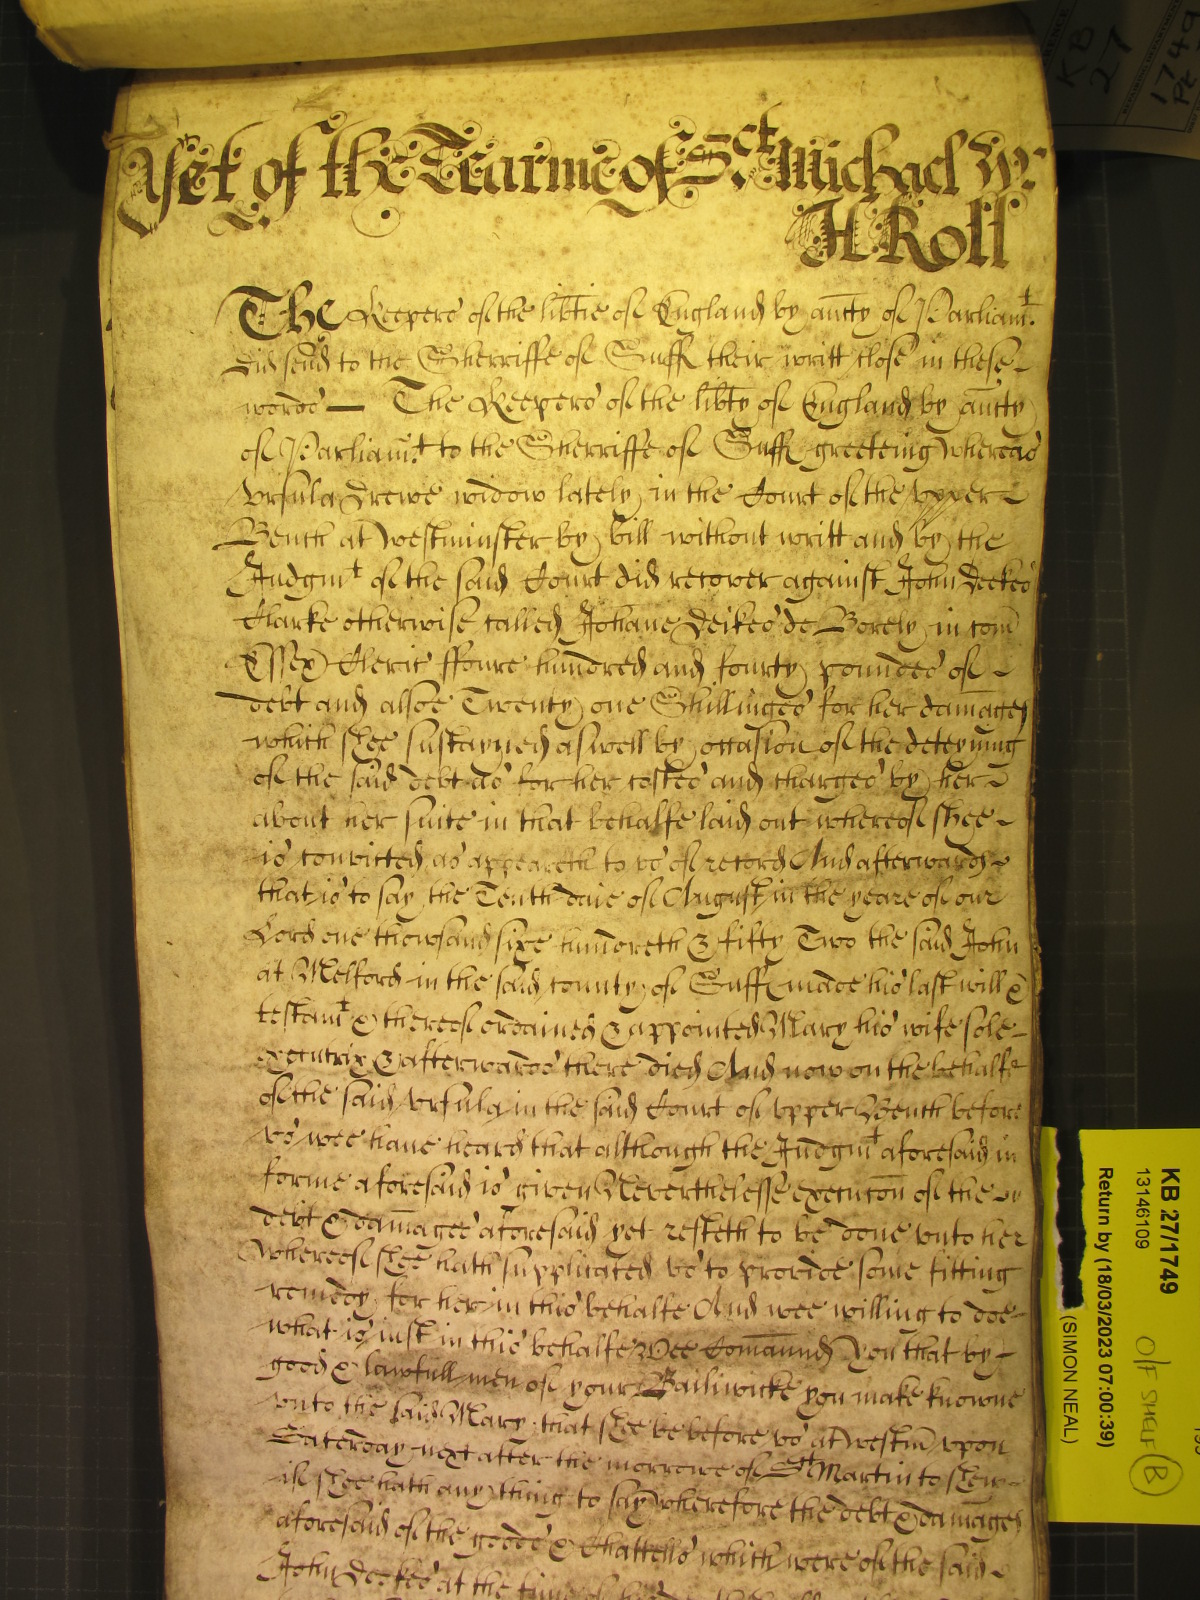 Yet of the Tearme of Sct Michael W:
H Roll
The Keepers of the libtie of England by autty of Parliamt.
did send to the Sherriffe of Suff their writt close in these
words — The Keepers of the libty of England by autty
of Parliamt to the Sherriffe of Suff greeteing whereas
Ursula Drewe widow lately in the Court of the upper
Bench at Westminster by bill without writt and by the
Judgmt of the said Court did recover against John Deekes
Clarke otherwise called Johane Deikes de Borely in com
Essex Cleric ffoure hundred and fourty poundes of
debt and alsoe Twenty one Shillinges for her damages
which shee sustayned aswell by occasion of the deteyning
of the said debt as for her costes and charges by her
about her suite in that behalfe laid out whereof shee
is convicted as appeareth to us of record And afterwards
that is to say the Tenth daie of August in the yeare of our
Lord one thowsand sixe hundreth & fifty Two the said John
at Melford in the said county of Suff made his last will &
testamt & thereof ordained & appointed Mary his wife sole
executrix & afterwards there died And now on the behalfe
of the said Ursula in the said Court of upper Bench before
us wee have heard that although the Judgmt aforesaid in
forme aforesaid is given Neverthelesse execucon of the
debt & damages aforesaid yet resteth to be done unto her
Whereof shee hath supplicated us to provide some fitting
remedy for her in this behalfe And wee willing to doe
what is just in this behalfe Wee Comaund you that by
good & lawfull men of your Bailiwicke you make knowne
unto the said Mary that shee be before us at Westm upon
Saterday next after the morrowe of St Martin to shew
if shee hath any thing to say wherefore the debt & damages
aforesaid of the goods & Chattells which were of the said
John Deekes at the time of
KB
27
1749
KB 27/1749
13146109
Return by (18/03/2023 07:00:39)
(SIMON NEAL)
O/F SHELF B